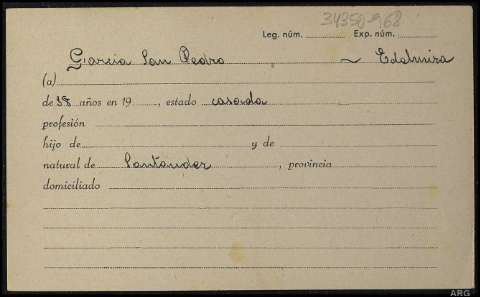 34350-968
Leg. núm. Exp. núm.
García San Pedro ~ Edelmira
(a)
de 38 años en 19 , estado casada
profesión
hijo de y de
natural de Santander , provincia
domiciliado
ARG